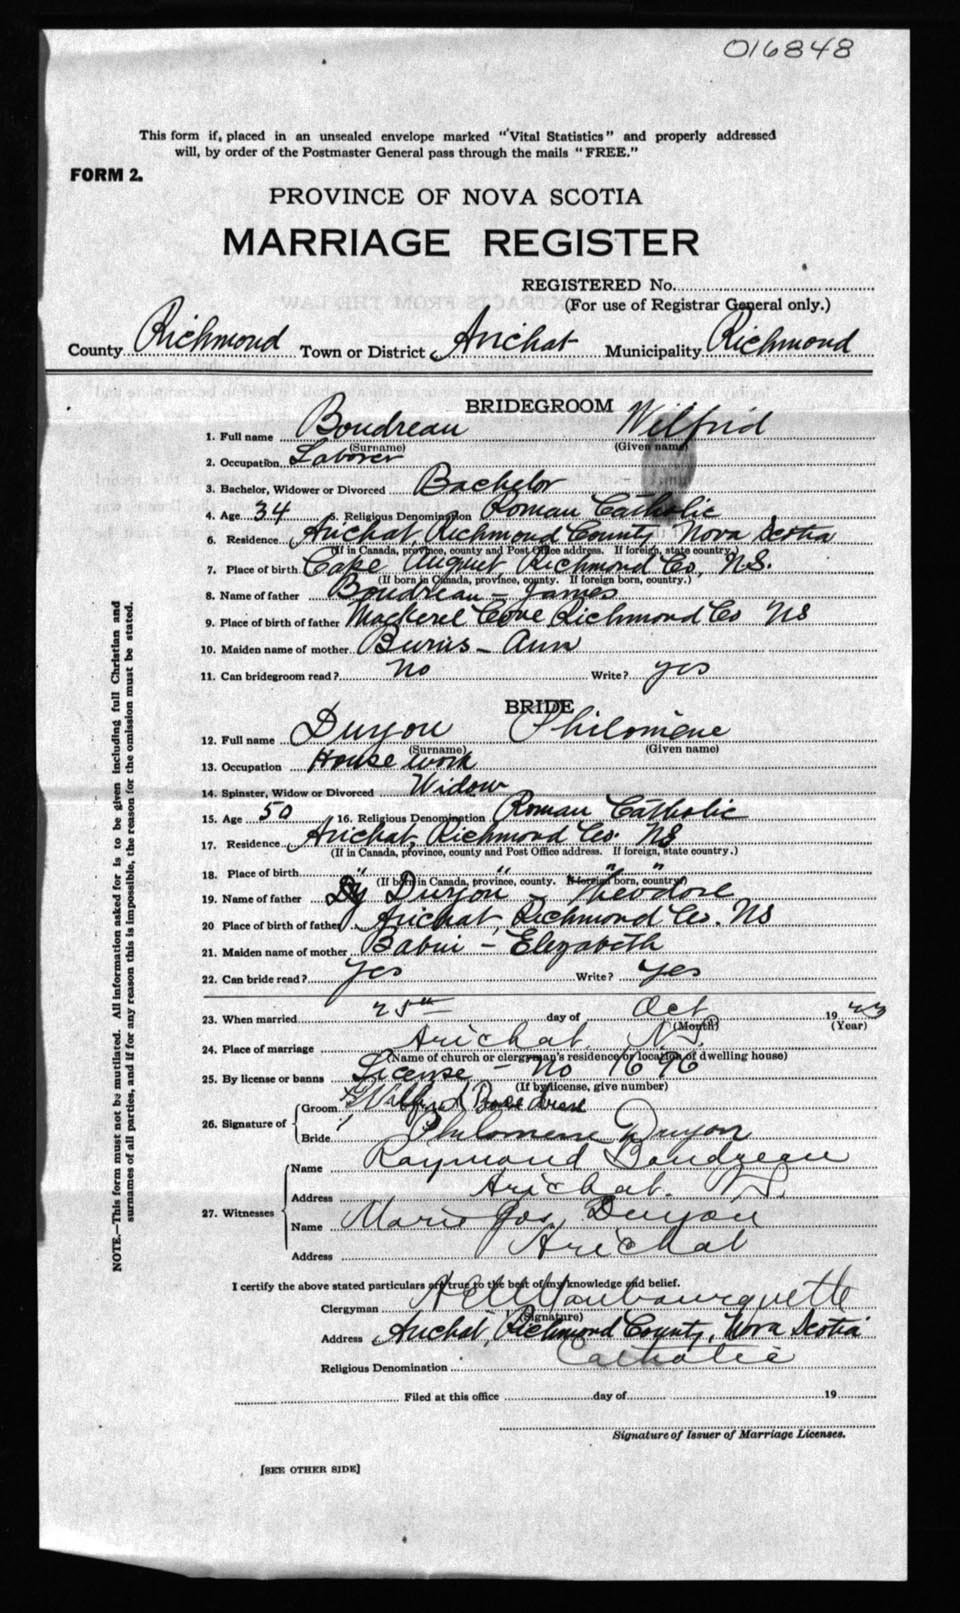 016848
This form if, placed in an unsealed envelope marked "Vital Statistics" and properly addressed
will, by order of the Postmaster General pass through the mails "FREE."
FORM 2.
PROVINCE OF NOVA SCOTIA
MARRIAGE REGISTER
REGISTERED No.
(For use of Registrar General only.)
County Richmond Town or District Arichat Municipality Richmond
BRIDEGROOM
1. Full name Boudreau Wilfrid
(Surname) (Given name)
2. Occupation Laborer
3. Bachelor, Widower or Divorced Bachelor
4. Age 34 5. Religious Denomination Roman Catholic
6. Residence Arichat, Richmond County Nova Scotia
(If in Canada, province, county and Post Office address. If foreign, state country.)
7. Place of birth Cape August, Richmond Co, N.S.
(If born in Canada, province, county. If foreign born, country.)
8. Name of father Boudreau - James
9. Place of birth of father Mackerel Cove Richmond Co NS
10. Maiden name of mother Burns - Ann
11. Can bridegroom read? No Write? yes
BRIDE
12. Full name Duyon Philomene
(Surname) (Given name)
13. Occupation House work
14. Spinster, Widow or Divorced Widow
15. Age 50 16. Religious Denomination Roman Catholic
17. Residence Arichat, Richmond Co. NS
(If in Canada, province, county and Post Office address. If foreign, state country.)
18. Place of birth " " " "
(If born in Canada, province, county. If foreign born, country)
19. Name of father Duyon - Theodore
20 Place of birth of father Arichat, Richmond Co. NS
21. Maiden name of mother Babin - Elizabeth
22. Can bride read? Yes Write? yes
23. When married 25th day of Oct 1923
(Month) (Year)
24. Place of marriage Arichat N.S.
(Name of church or clergyman's residence or location of dwelling house)
25. By license or banns License - No 1696
(If by license, give number)
26. Signature of Groom Wilfrid Boudreau
Bride Philomene Duyon
27. Witnesses Name Raymond Boudreau
Address Arichat. N.S.
Name Marie Jos. Duyon
Address Arichat
I certify the above stated particulars are true to the best of my knowledge and belief.
Clergyman Monbourquette
(Signature)
Address Arichat, Richmond County, Nova Scotia
Religious Denomination Catholic
Filed at this office day of 19
Signature of Issuer of Marriage Licenses.
[SEE OTHER SIDE]
NOTE.—This form must not be mutilated. All information asked for is to be given including full Christian and
surnames of all parties, and if for any reason this is impossible, the reason for the omission must be stated.